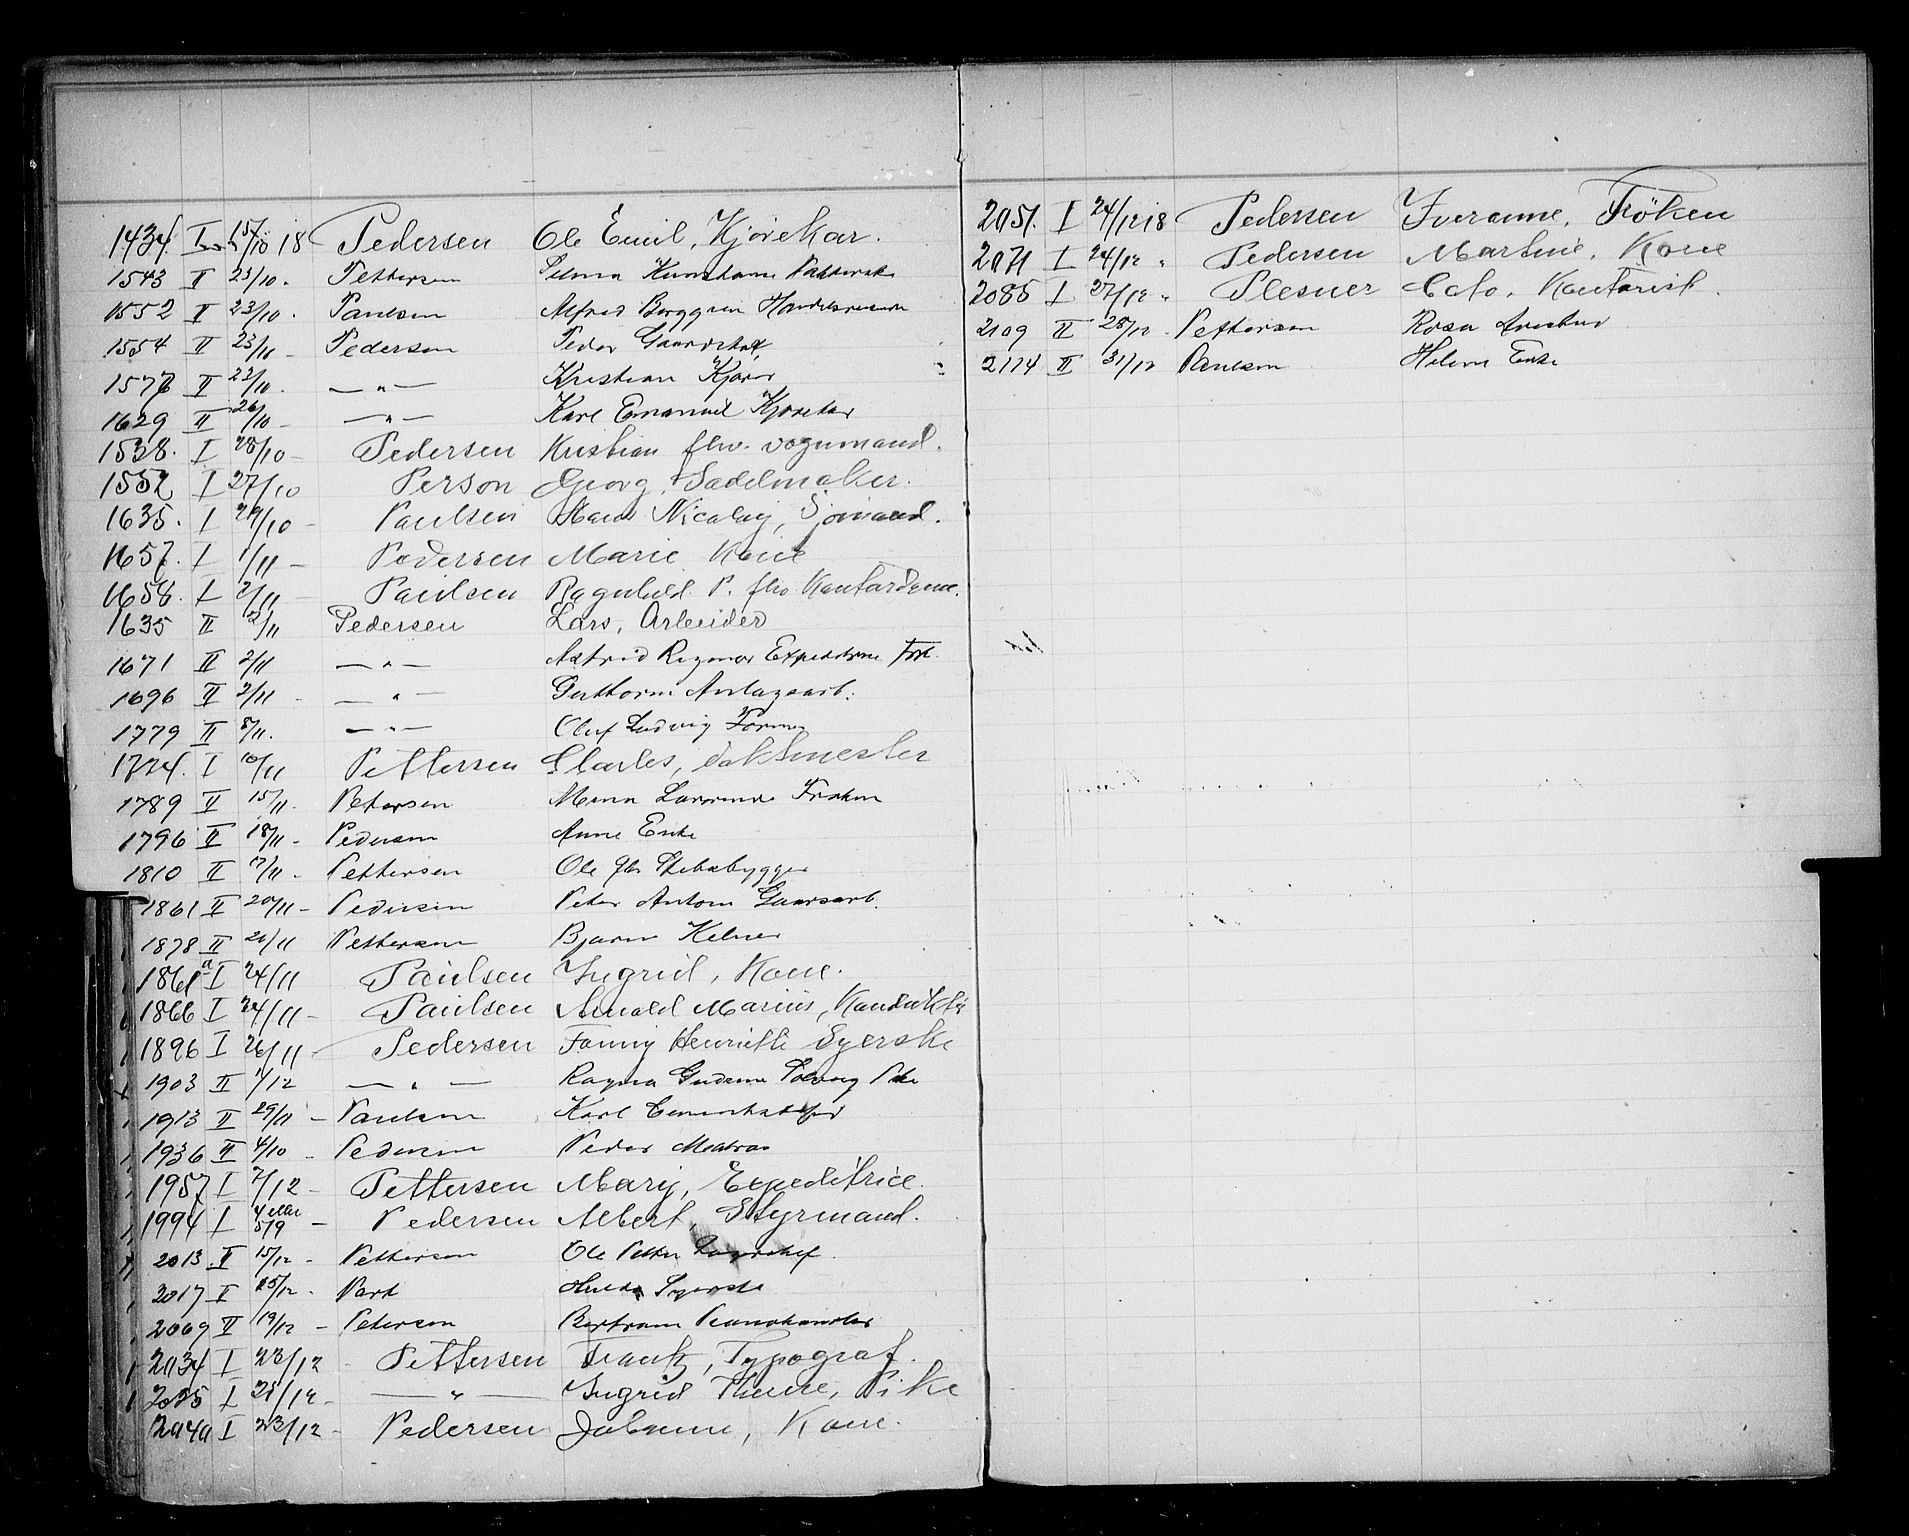 1434. I 15/10 18 Pedersen Ole Emil, Kjörekar.
1543 II 23/10. Pettersen
1552 II 23/10. Paulsen Alfred Berggren Handelsreisende
1554 II 23/11 - Pedersen Peder
1576 II 23/10. —"— Kristian Kjører
1629 II 26/10 - —"— Karl Emanuel Kjørekar
1538. I 28/10 - Pedersen Kristian fhv. vognmand.
1552 I 27/10 Person Georg, Sadelmaker.
1635. I 29/10 - Paulsen Hans Nicolay, Sjömand.
1657. I 1/11 - Pedersen Marie Kone
1658. I 2/11 Paulsen Ragnhild P. fhv Kontordame.
1635 II 2/11 Pedersen Lars, Arbeider
1671 II 2/11 —"— Astrid Ragmor Frk.
1696 II 2/11 - —"— Gutthorm Anlægsarb.
1779 II 8/11. —"— Oluf Ludvig Former
1774. I 10/11 Pettersen Charles, Vaktmester
1789 II 15/11. Petersen Frøken
1796 II 18/11 - Pedersen Anne Enke
1810 II 17/11 - Pettersen Ole fhv Skibsbygger
1861 II 20/11 - Pedersen Peter Anton Gaardsarb.
1878 II 21/11 Pettersen Bjarne Kelner
1861a I 24/11 Paulsen Ingrid, Kone.
1866 I 24/11 - Paulsen Arnold Marius, Konduktör
1896 I 26/11 - Pedersen Fanny Henriette Syerske
1903 II 1/12 —"— Ragna Gudrun Solveig Pike
1913 II 29/11 - Paulsen Karl
1936 II 4/10 - Pedersen Peder Matros
1957 I 7/12 - Pettersen Mary, Expeditrice.
1994 I 4 eller 5/9 - Pedersen Albert, Styrmand.
2013. II 15/12 - Pettersen Ole Petter
2017 I 15/12 - Hulda Syerske
2009 II 19/12 - Petersen Bertram Pianohandler
2034 I 23/12 - Pettersen Frantz, Typograf.
2035 I 21/12 - —"— Ingrid Pike
2040 I 23/12 - Pedersen Johanne, Kone.
2051. I 24/12 18 Pedersen Iveranne, Fröken
2071 I 24/12 " Pedersen Martine, Kone
2085 I 27/12 " Plesner Cato, Kontorist.
2109 II 28/12 - Pettersen Rosa
2114 II 31/12 Paulsen Helene Enke